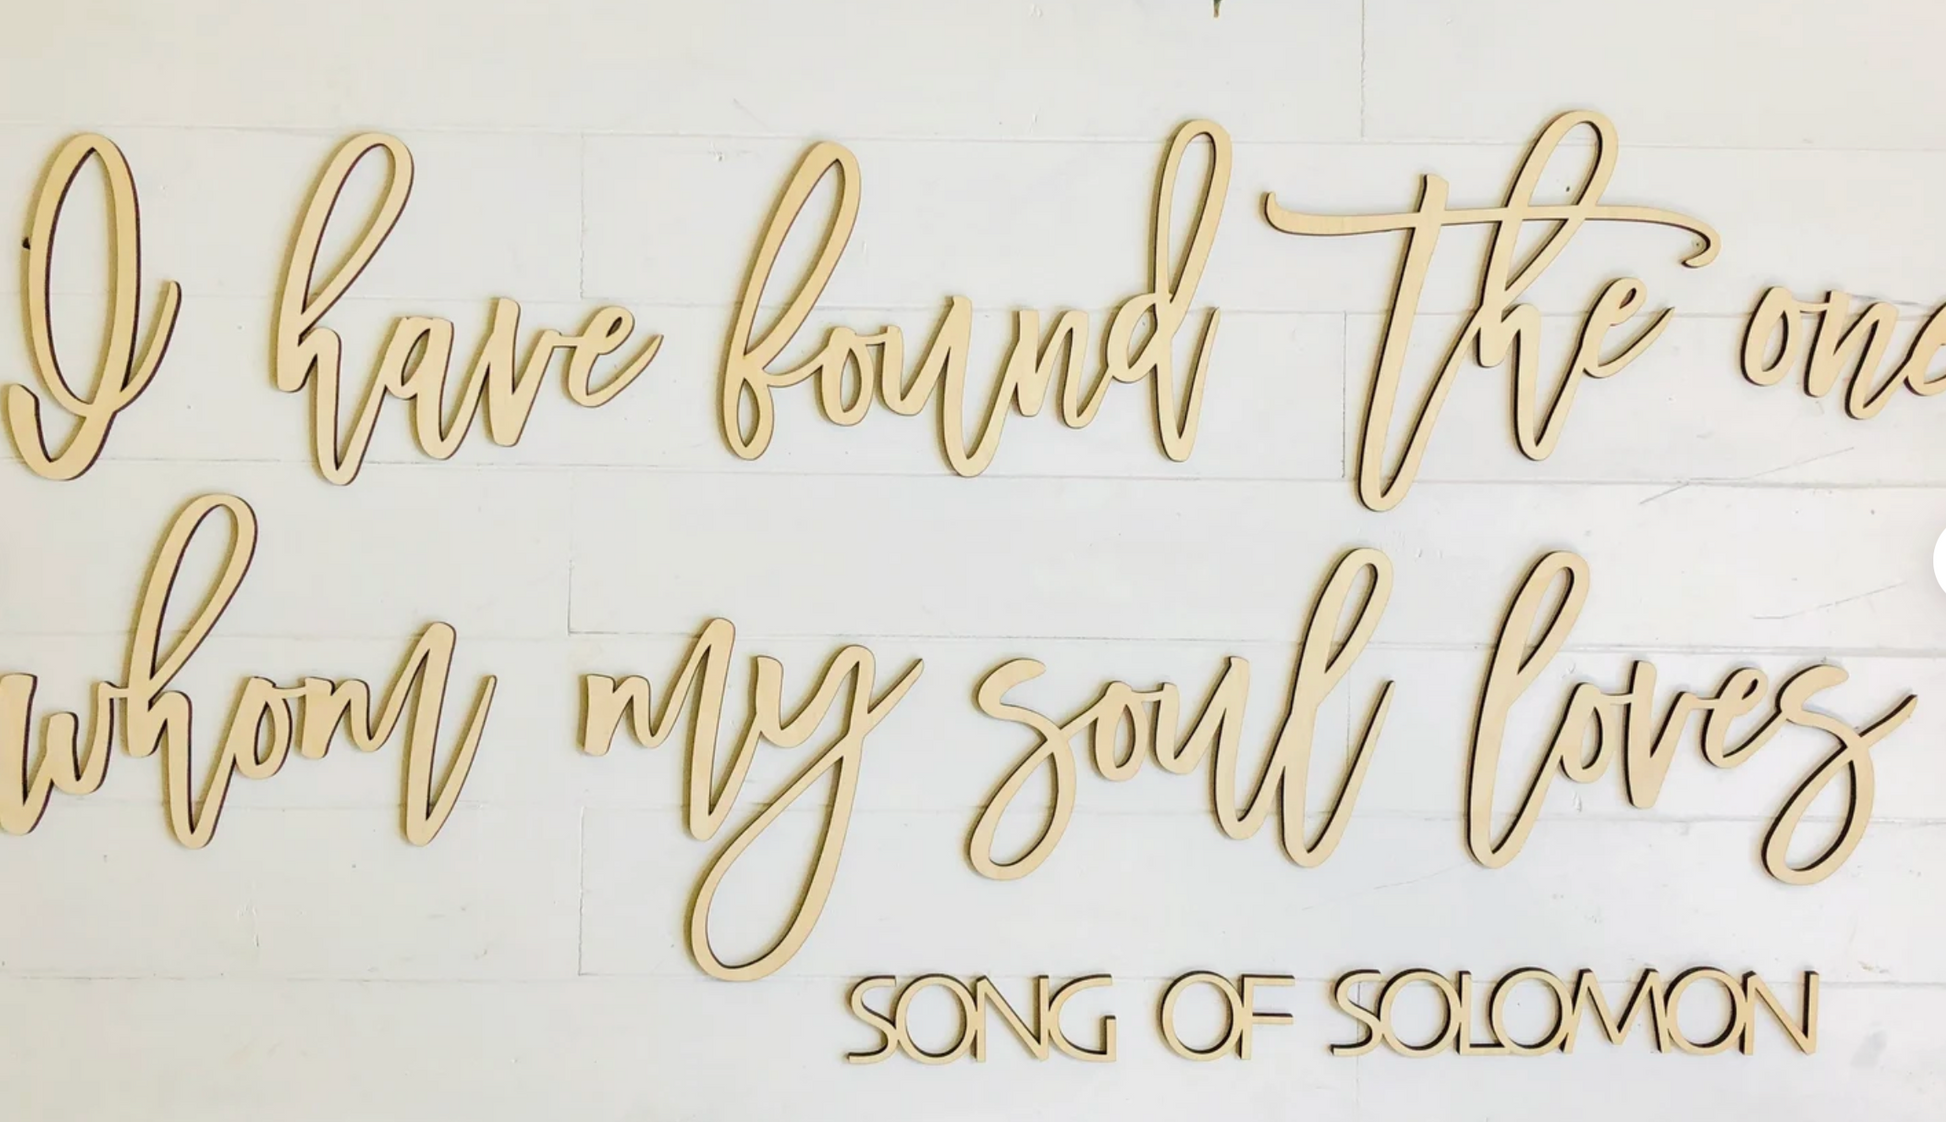 I have found the one
whom my soul loves
SONG OF SOLOMON